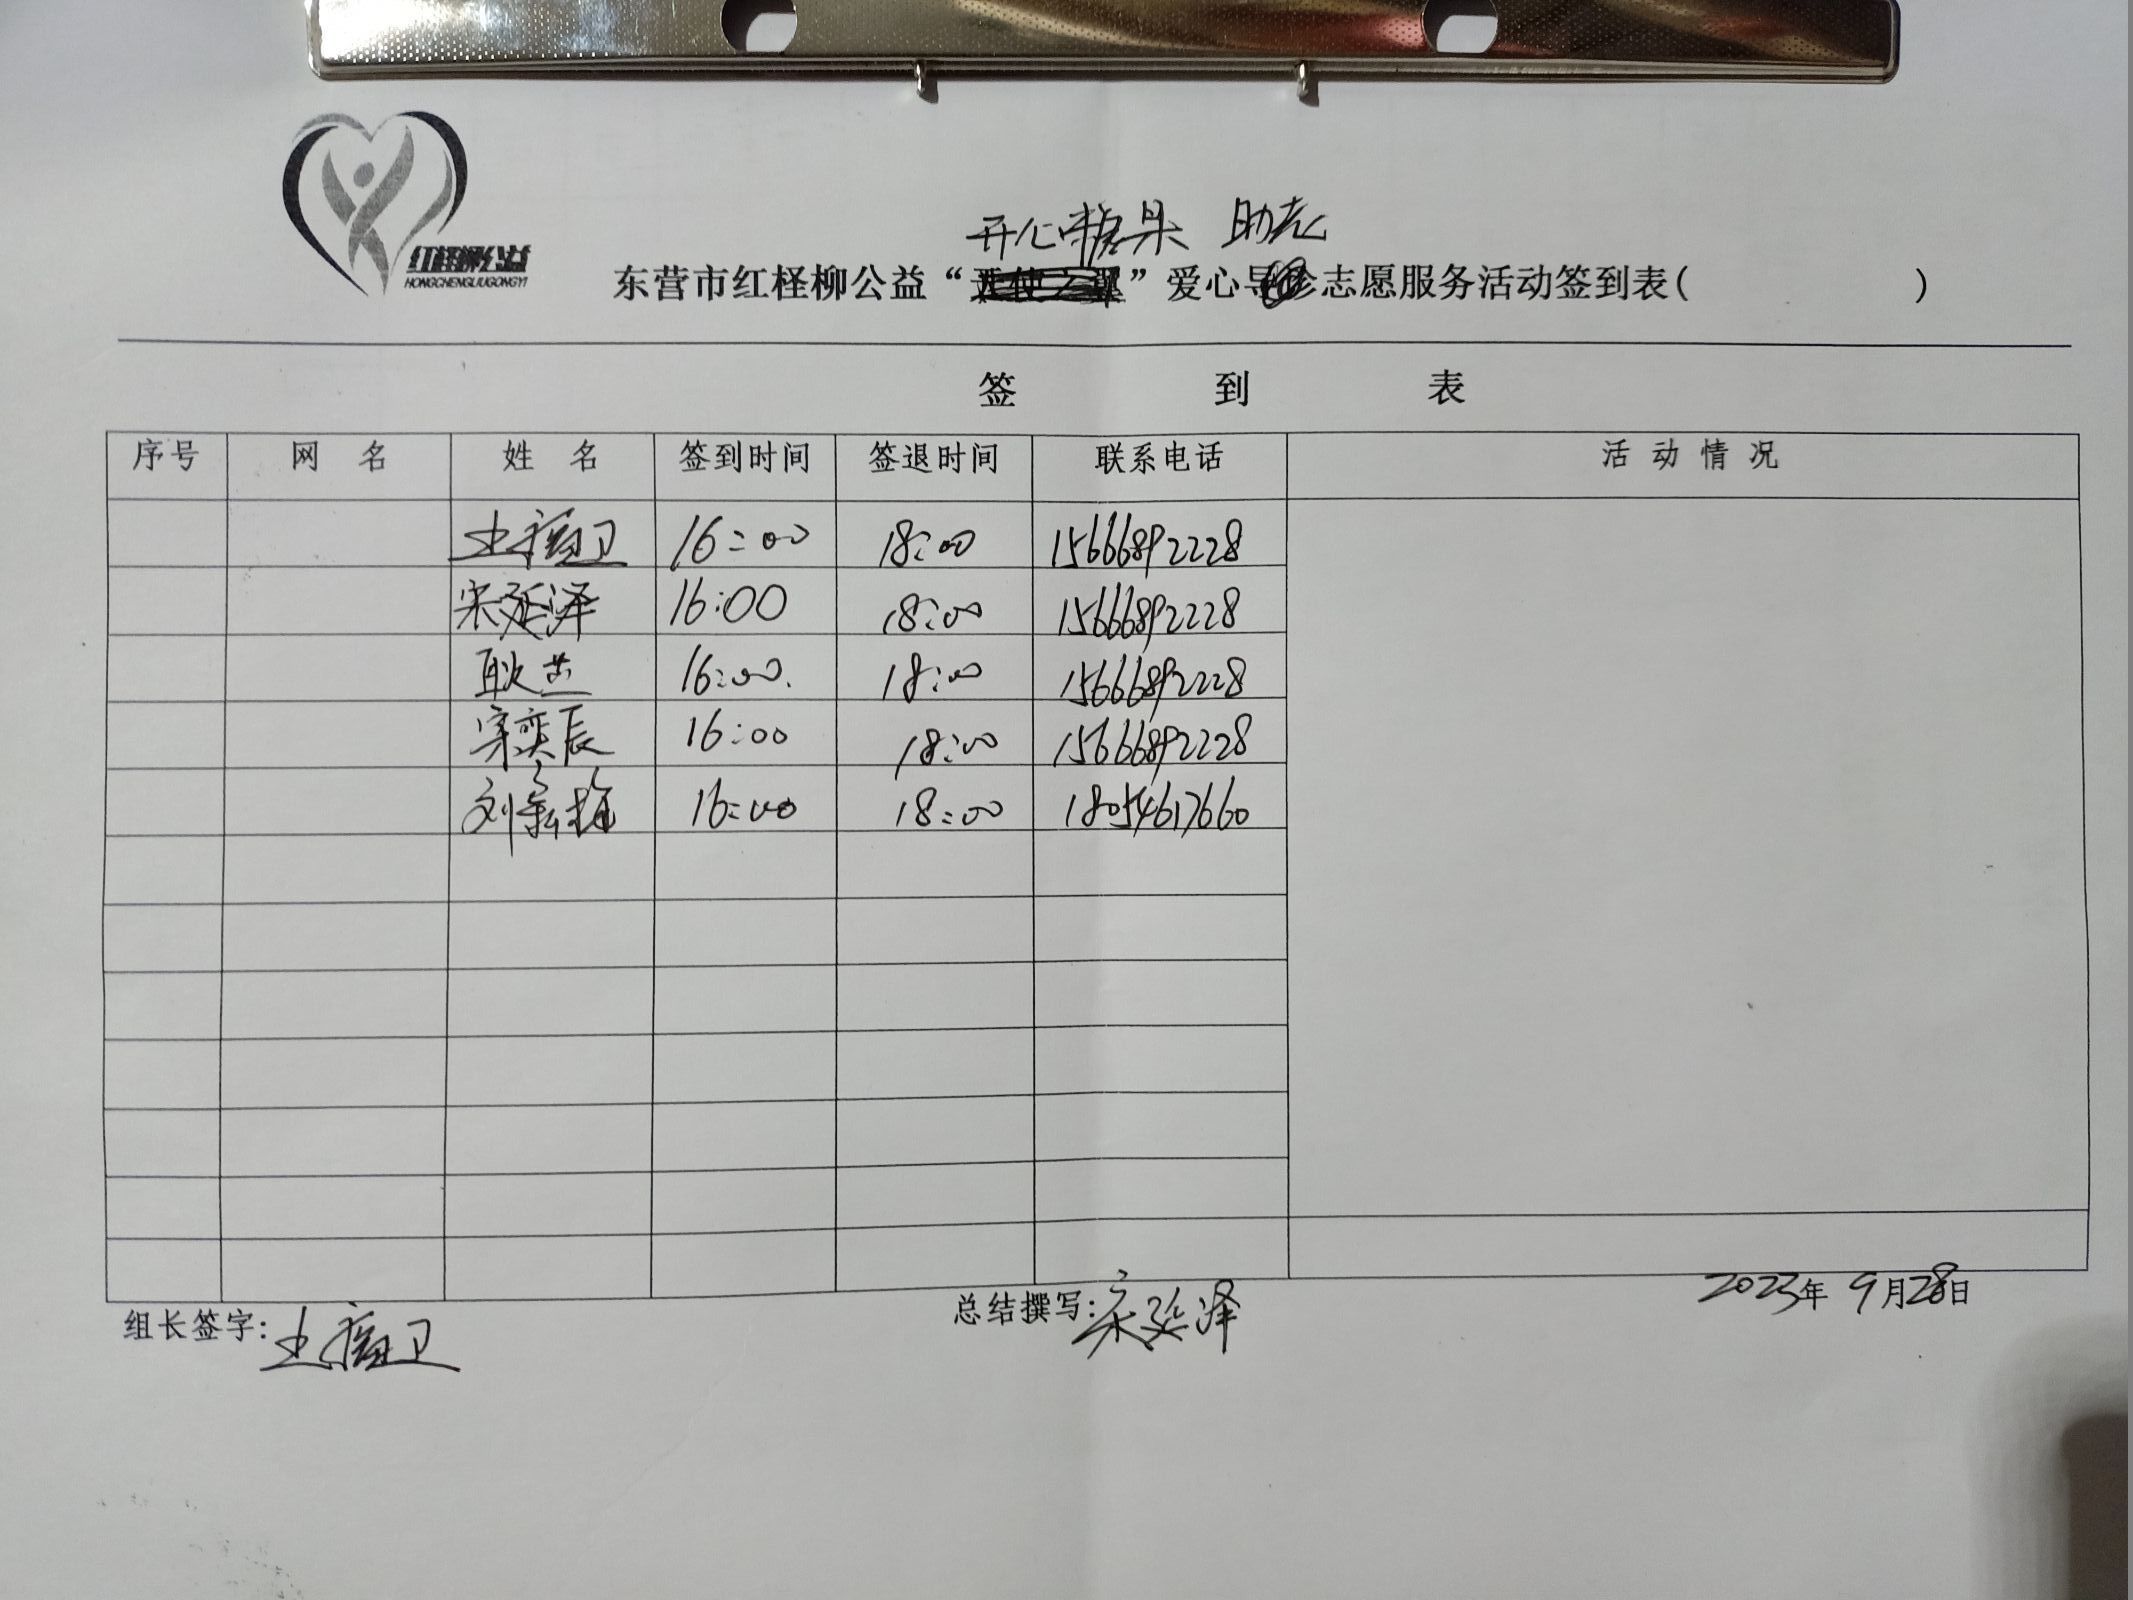 红柽柳公益
HONGCHENGLIUGONGYI
开心糖果 助志
东营市红柽柳公益“天使之翼”爱心导诊志愿服务活动签到表( )
签 到 表
序号 网 名 姓 名 签到时间 签退时间 联系电话 活 动 情 况
16:00 18:00 15666892228
宋延泽 16:00 18:00 15666892228
耿芸 16:00. 18:00 15666892228
宋奕辰 16:00 18:00 15666892228
刘 16:00 18:00 18054617660
组长签字: 总结撰写:宋延泽 2023年 9月28日